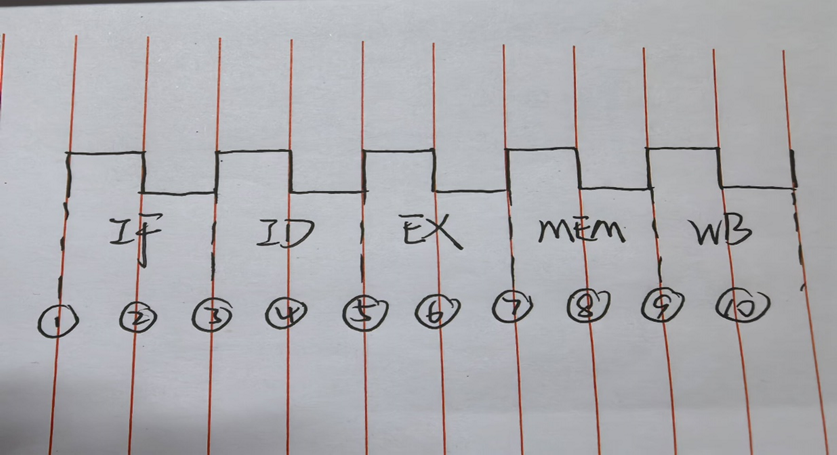 IF ID EX MEM WB
① ② ③ ④ ⑤ ⑥ ⑦ ⑧ ⑨ ⑩